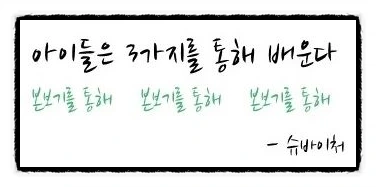 아이들은 3가지를 통해 배운다
본보기를 통해 본보기를 통해 본보기를 통해
- 슈바이처